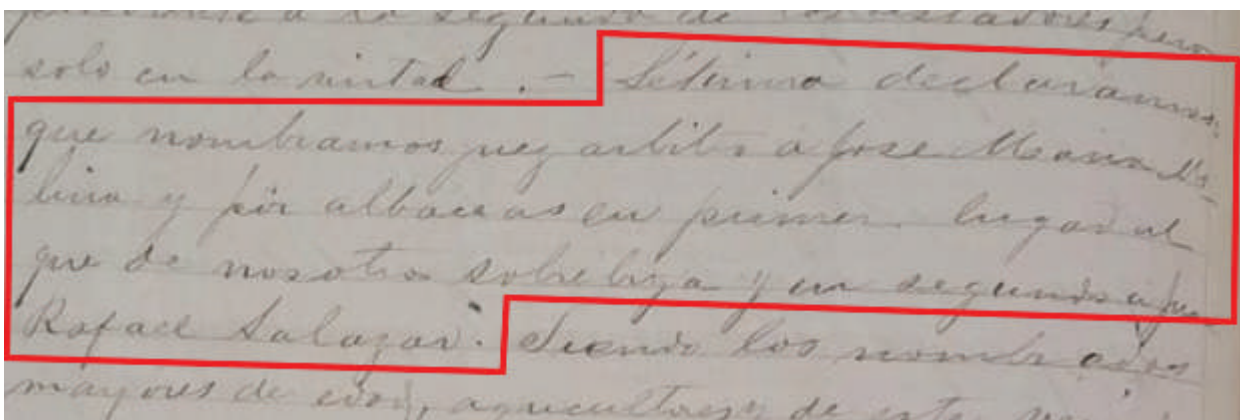 pertenece a la segunda de los testadores pero
solo en la mitad . — Sétima declaramos
que nombramos juez arbitro a Jose Maria Mo-
lina y por albaceas en primer lugar al
que de nosotros sobrebiva y en segundo a Juan
Rafael Salazar. Siendo los nombrados
mayores de edad, agricultores y de este